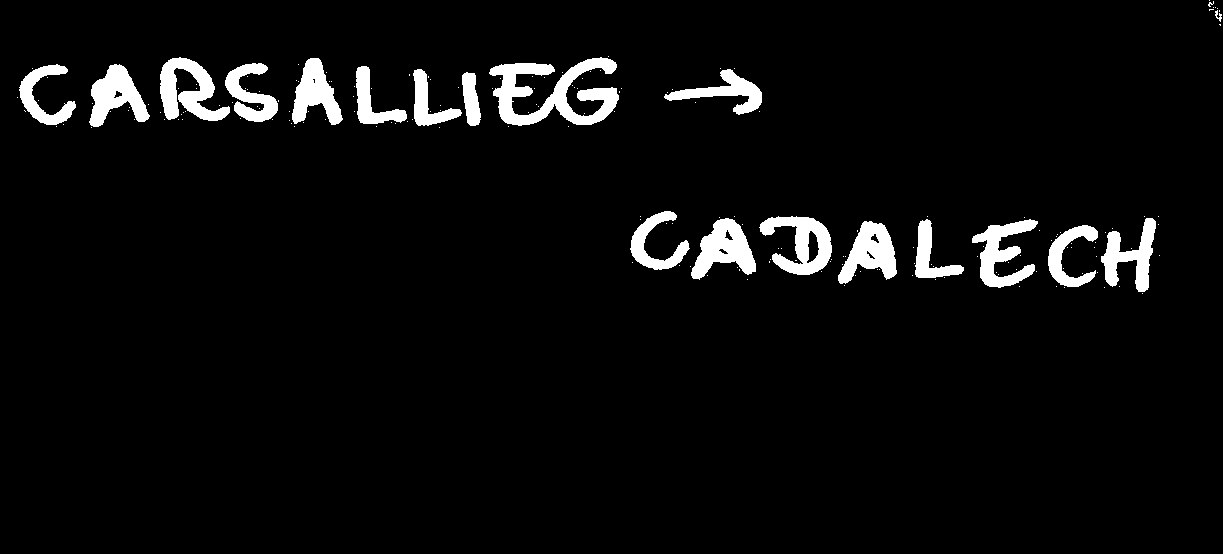 CARSALLIEG →
CADALECH